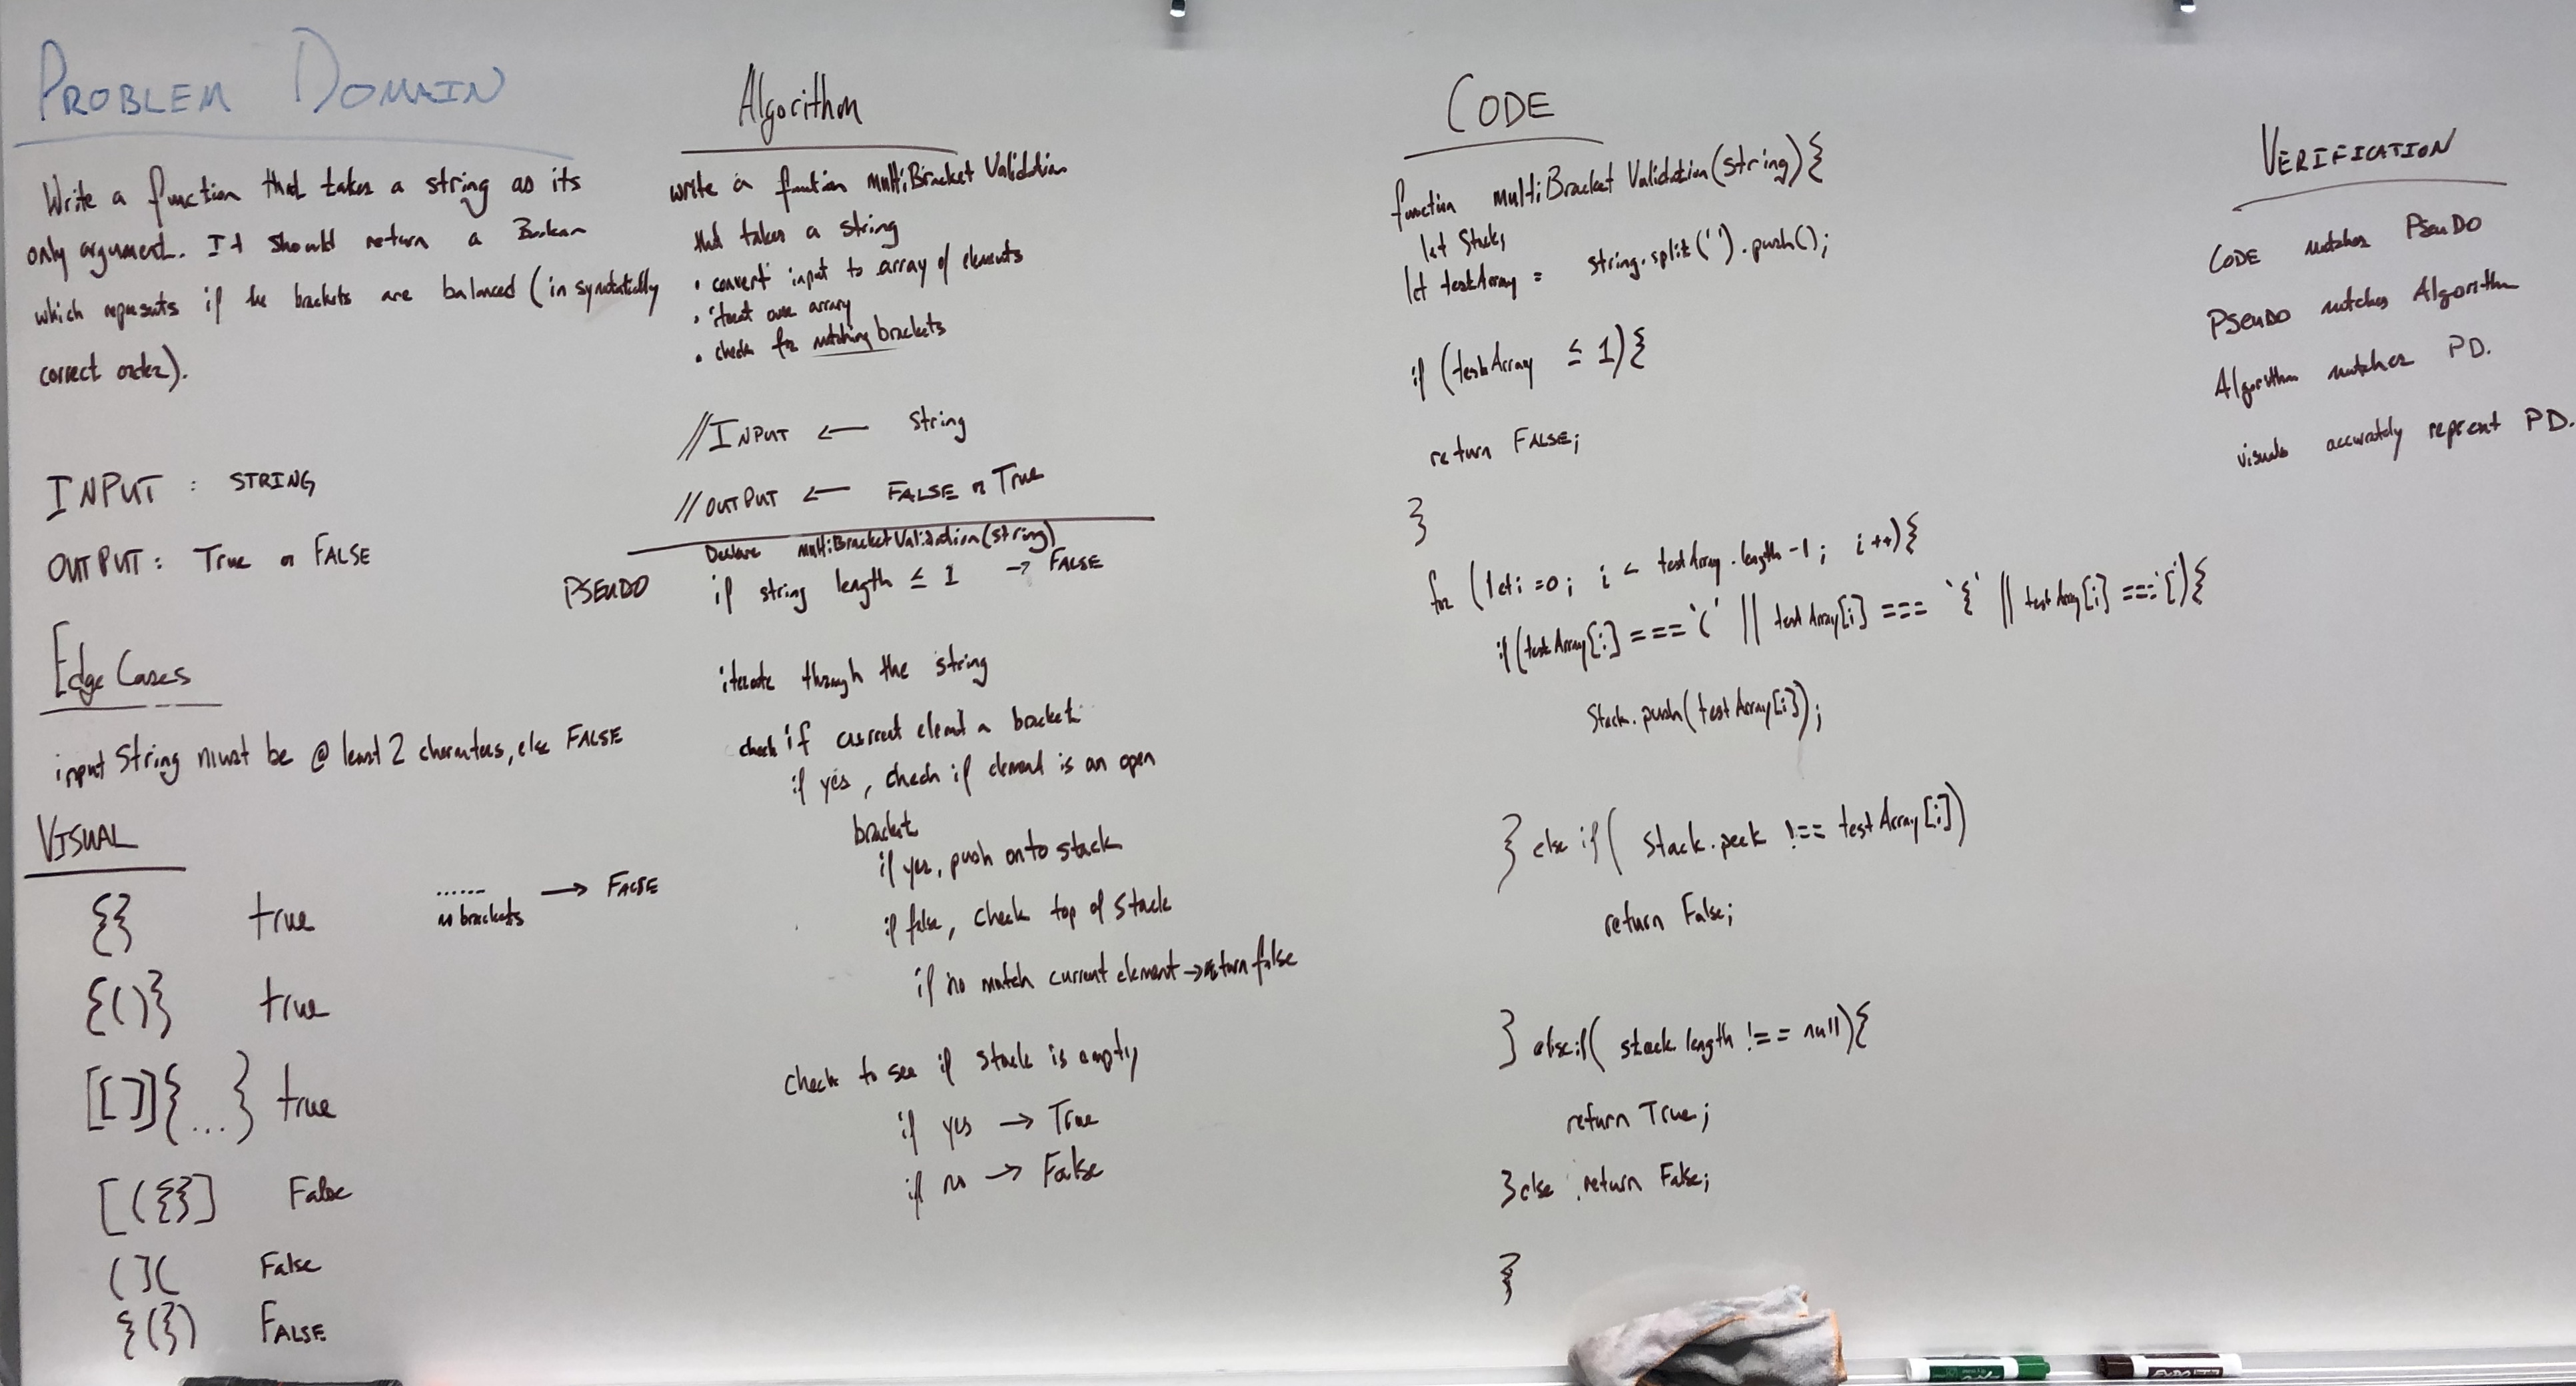 PROBLEM DOMAIN
Write a function that takes a string as its
only argument. It should return a Boolean
which represents if the brackets are balanced (in syntatically
correct order).
INPUT : STRING
OUTPUT: True or FALSE
Edge Cases
input String must be @ least 2 characters, else FALSE
VISUAL
{} true
...... → FALSE
no brackets
{()} true
[[]]{...} true
[({}] False
(]( False
{(}) FALSE
Algorithm
write a function multiBracketValidation
that takes a string
• convert input to array of elements
• iterat over array
• check for matching brackets
//INPUT ← string
//OUTPUT ← FALSE or True
PSEUDO
Declare multiBracketValidation(string)
if string length ≤ 1 → FALSE
iterate through the string
check if current element a bracket
if yes, check if element is an open
bracket
if yes, push onto stack
if false, check top of stack
if no match current element → return false
check to see if stack is empty
if yes → True
if no → False
CODE
function multiBracketValidation(string){
let Stack;
let testArray = string.split('').push();
if (testArray ≤ 1){
return FALSE;
}
for (let i=0; i < testArray.length-1; i++){
if(testArray[i] === '(' || testArray[i] === '{' || testArray[i] === '['){
Stack.push(testArray[i]);
} else if( stack.peek !== testArray[i])
return False;
} else if( stack.length !== null){
return True;
}else return False;
}
VERIFICATION
CODE matches PSEUDO
PSEUDO matches Algorithm
Algorithm matches PD.
visuals accurately reprent PD.